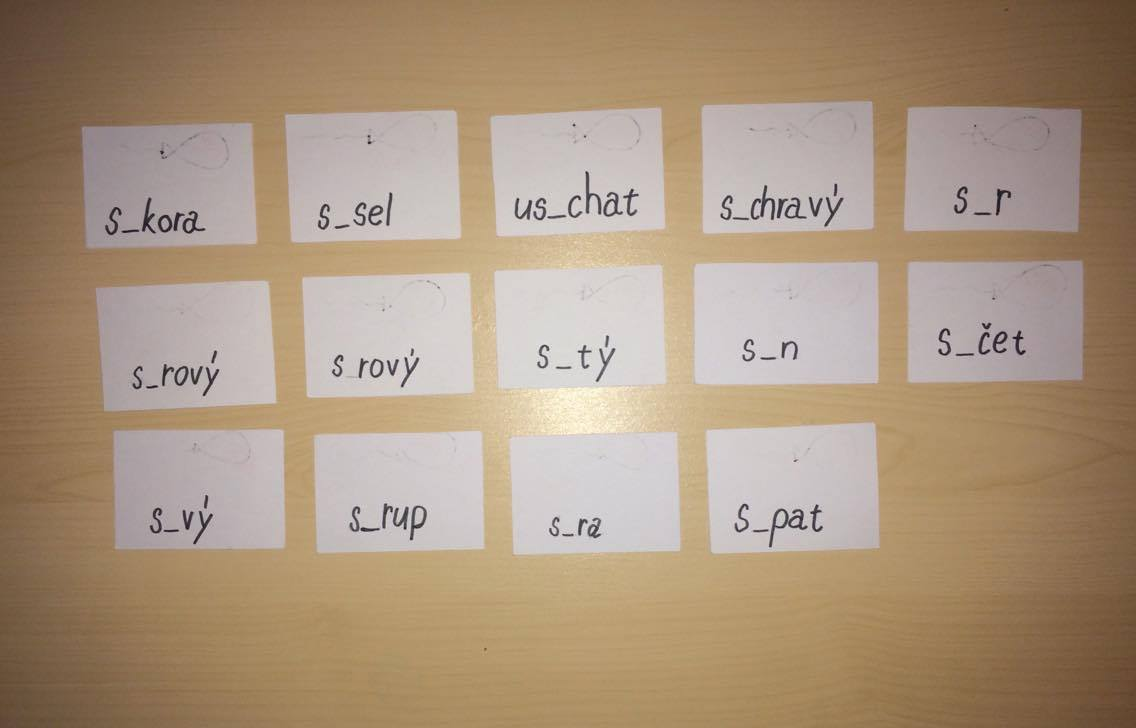 s_kora s_sel us_chat s_chravý s_r
s_rový s_rový s_tý s_n s_čet
s_vý s_rup s_ra s_pat